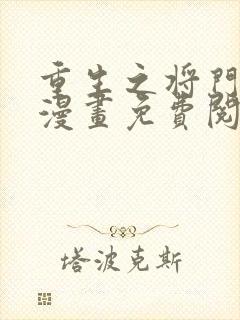 重生之将門
漫畫免費閱
塔波克斯